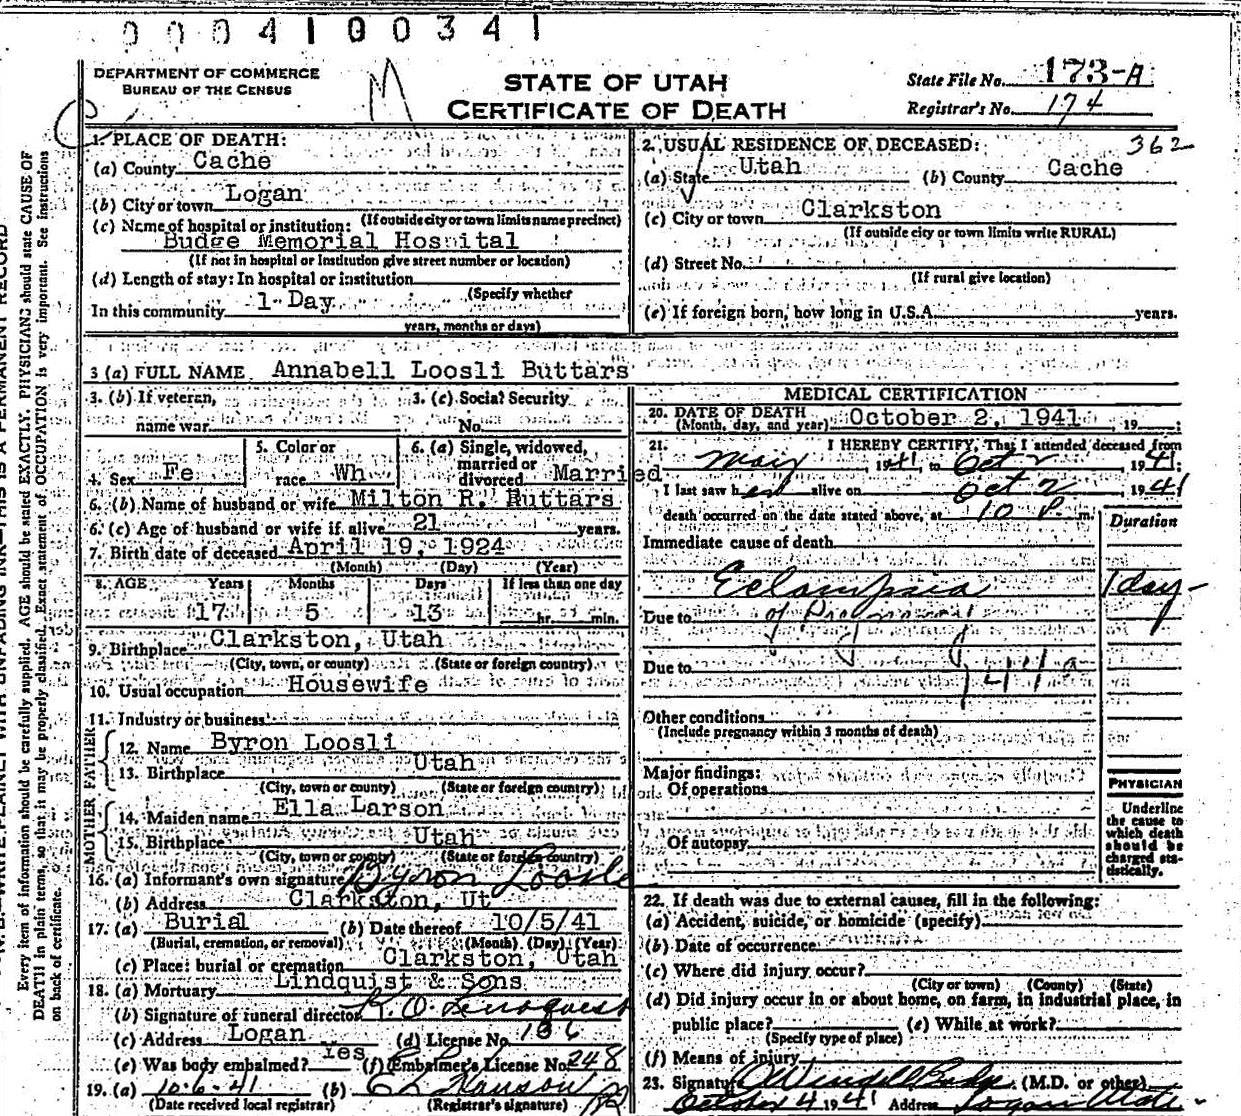 0004100341
DEPARTMENT OF COMMERCE
BUREAU OF THE CENSUS
M
STATE OF UTAH
CERTIFICATE OF DEATH
State File No. 173-A
Registrar's No. 174
1. PLACE OF DEATH:
(a) County Cache
(b) City or town Logan
(If outside city or town limits name precinct)
(c) Name of hospital or institution:
Budge Memorial Hospital
(If not in hospital or Institution give street number or location)
(d) Length of stay: In hospital or institution
(Specify whether
In this community 1 Day
years, months or days)
362
2. USUAL RESIDENCE OF DECEASED:
(a) State Utah (b) County Cache
(c) City or town Clarkston
(If outside city or town limits write RURAL)
(d) Street No.
(If rural give location)
(e) If foreign born, how long in U.S.A. years.
3 (a) FULL NAME Annabell Loosli Buttars
3. (b) If veteran, name war
3. (c) Social Security No.
4. Sex Fe
5. Color or race Wh
6. (a) Single, widowed, married or divorced Married
6. (b) Name of husband or wife Milton R. Buttars
6. (c) Age of husband or wife if alive 21 years.
7. Birth date of deceased April 19, 1924
(Month) (Day) (Year)
8. AGE Years Months Days If less than one day
17 5 13 hr. min.
9. Birthplace Clarkston, Utah
(City, town, or county) (State or foreign country)
10. Usual occupation Housewife
11. Industry or business
FATHER
12. Name Byron Loosli
13. Birthplace Utah
(City, town or county) (State or foreign country)
MOTHER
14. Maiden name Ella Larson
15. Birthplace Utah
(City, town or county) (State or foreign country)
16. (a) Informant's own signature Byron Loosle
(b) Address Clarkston, Ut
17. (a) Burial (b) Date thereof 10/5/41
(Burial, cremation, or removal) (Month) (Day) (Year)
(c) Place: burial or cremation Clarkston, Utah
18. (a) Mortuary Lindquist & Sons
(b) Signature of funeral director R. O. Lindquist
(c) Address Logan (d) License No. 136
(e) Was body embalmed? Yes (f) Embalmer's License No. 248
19. (a) 10-6-41 (b) Hanson
(Date received local registrar) (Registrar's signature)
MEDICAL CERTIFICATION
20. DATE OF DEATH
(Month, day, and year) October 2, 1941 , 19 ;
21. I HEREBY CERTIFY, That I attended deceased from
May , 1941, to Oct 2 , 1941;
I last saw her alive on Oct 2 , 1941
death occurred on the date stated above, at 10 P. m.
Duration
Immediate cause of death
Eclampsia 1 day
Due to of Pregnancy
Due to
Other conditions
(Include pregnancy within 3 months of death)
Major findings:
Of operations
Of autopsy
PHYSICIAN
Underline
the cause to
which death
should be
charged sta-
tistically.
22. If death was due to external causes, fill in the following:
(a) Accident, suicide, or homicide (specify)
(b) Date of occurrence
(c) Where did injury occur?
(City or town) (County) (State)
(d) Did injury occur in or about home, on farm, in industrial place, in
public place? (e) While at work?
(Specify type of place)
(f) Means of injury
23. Signature O Wendell Budge (M.D. or other)
October 4 1941 Address Logan Utah
Every item of information should be carefully supplied. AGE should be stated EXACTLY. PHYSICIANS should state CAUSE OF
DEATH in plain terms, so that it may be properly classified. Exact statement of OCCUPATION is very important. See instructions
on back of certificate.